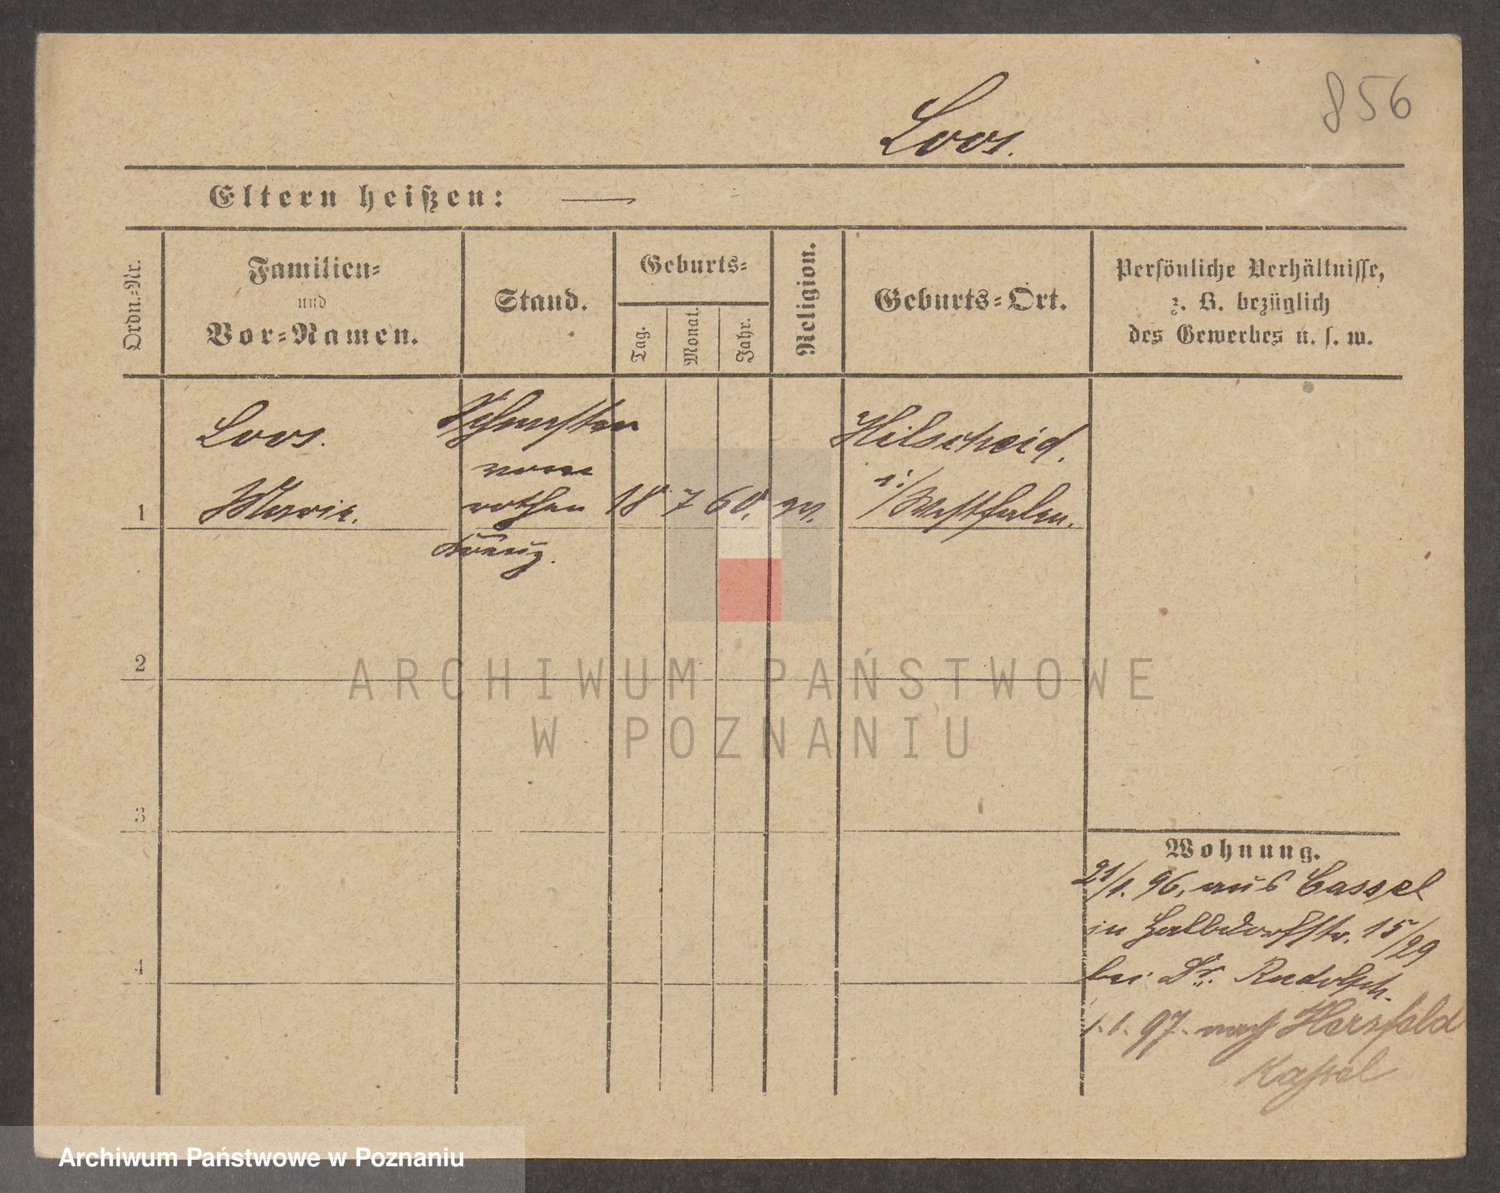 856
Loos.
Eltern heißen: —
Ordn.-Nr.
Familien-
und
Vor-Namen.
Stand.
Geburts-
Tag.
Monat.
Jahr.
Religion.
Geburts-Ort.
Persönliche Verhältnisse,
z. B. bezüglich
des Gewerbes u. s. w.
Loos.
Schwester
vom
rothen
Kreuz.
Hilscheid.
i/Westfalen.
1
Marie.
18 7 60. ev.
2
3
4
Wohnung.
21/1. 96. aus Cassel
in Halbdorfstr. 15/29
bei Dr. Rudolph.
1.1.97. nach Hersfeld
Kassel
ARCHIWUM PAŃSTWOWE
W POZNANIU
Archiwum Państwowe w Poznaniu